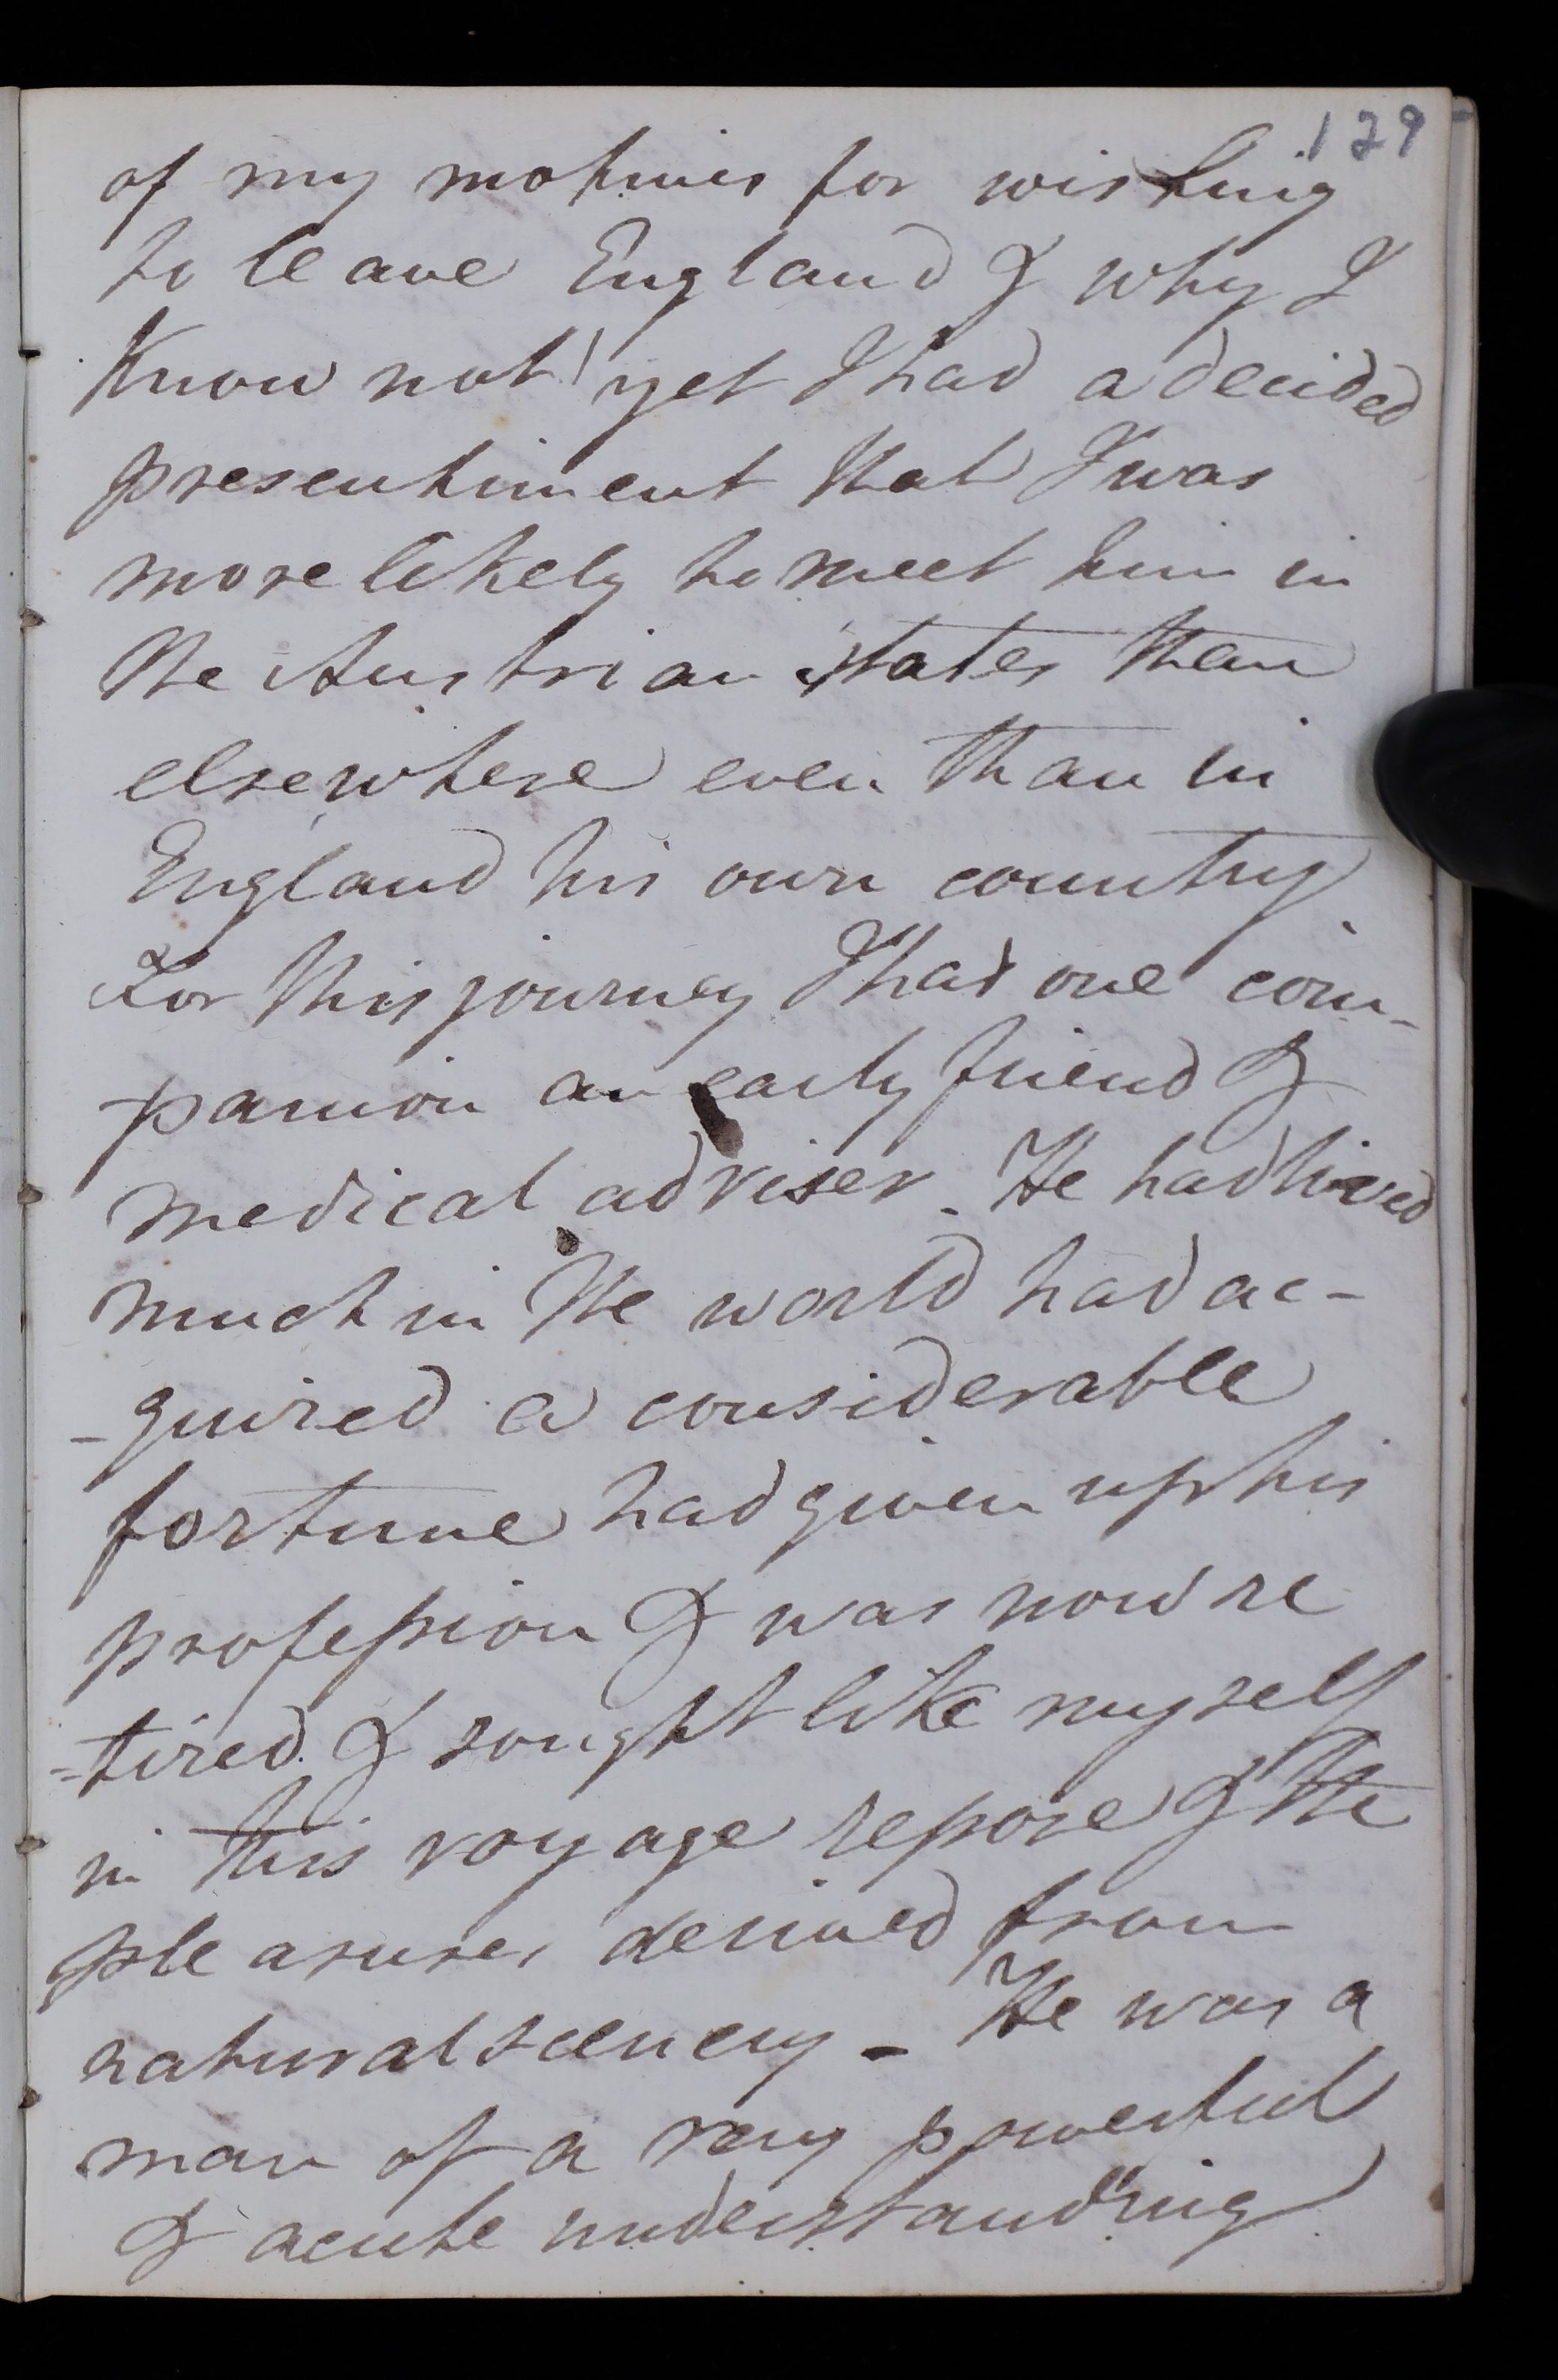 129
of my motives for wishing
to leave England & why I
Know not! yet I had a decided
presentiment that I was
more likely to meet him in
the Austrian states than
elsewhere even than in
England his own country.
For this journey I had one com-
panion an early friend &
medical adviser. He had lived
much in the world had ac-
-quired a considerable
fortune had given up his
profession & was now re
-tired. & sought like myself
in this voyage repose & the
pleasures derived from
natural scenery - He was a
man of a very powerful
& acute understanding